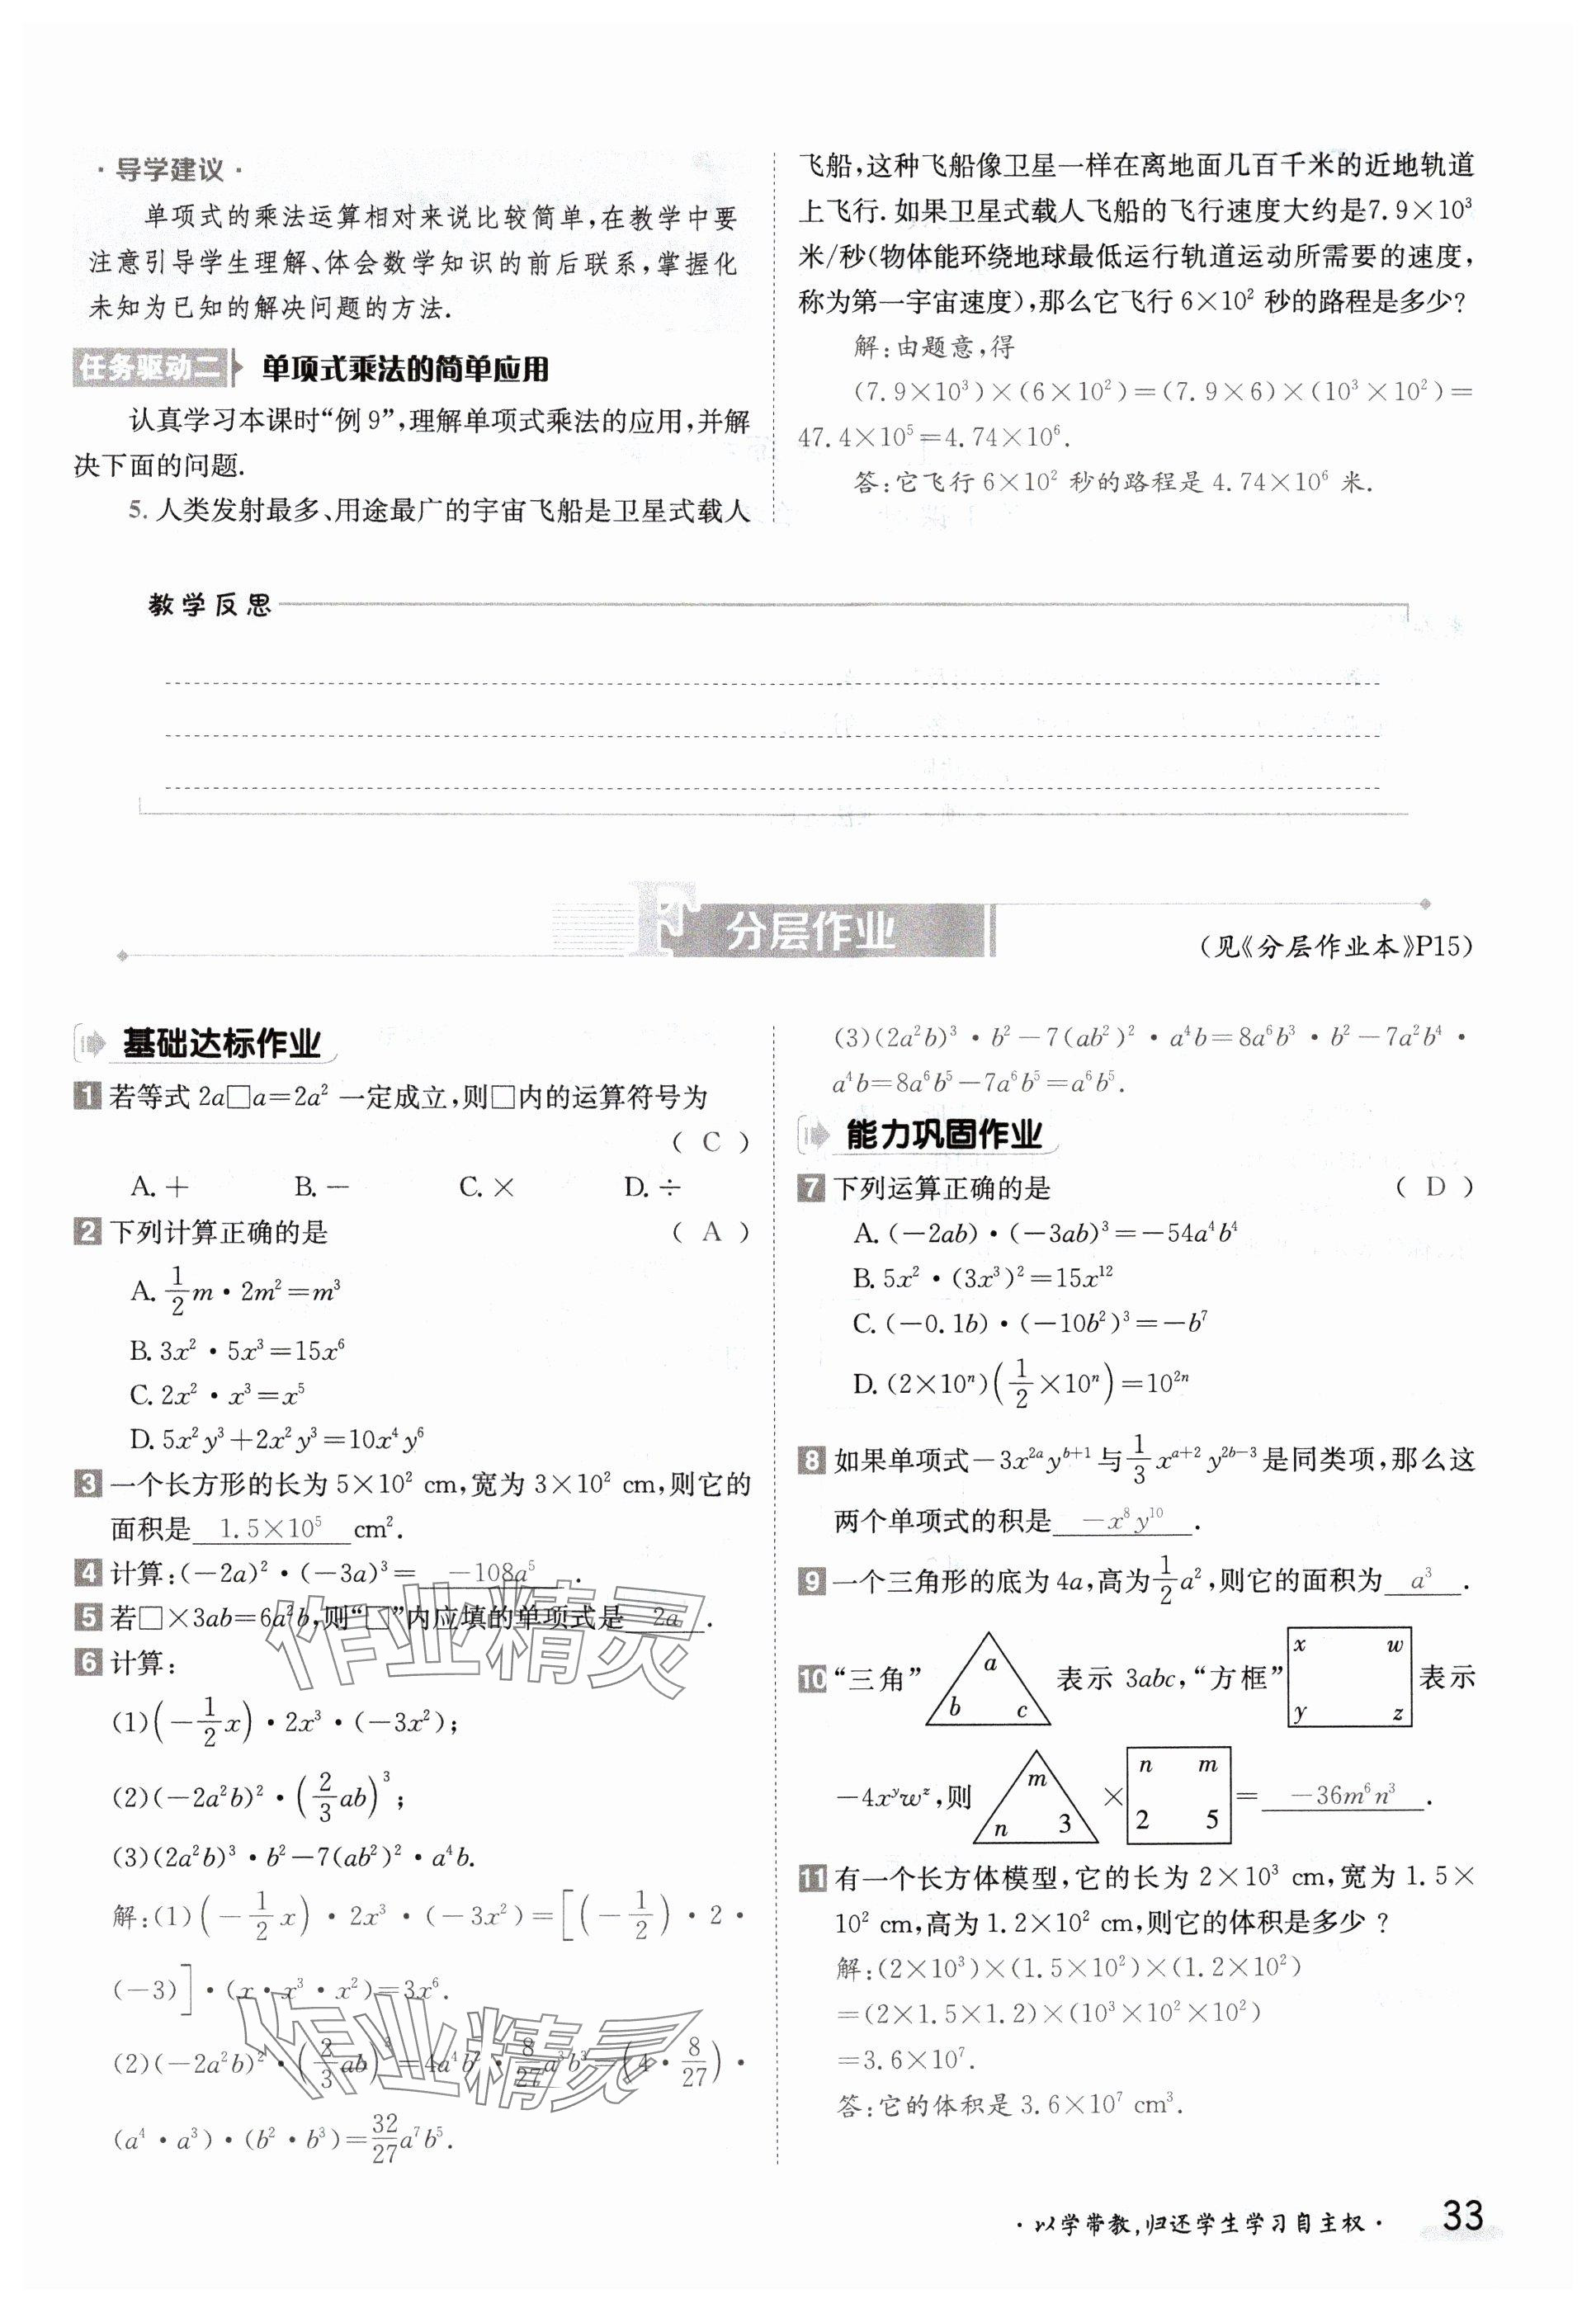 · 导学建议 ·
单项式的乘法运算相对来说比较简单,在教学中要
注意引导学生理解、体会数学知识的前后联系,掌握化
未知为已知的解决问题的方法.
任务驱动二 单项式乘法的简单应用
认真学习本课时“例 9”,理解单项式乘法的应用,并解
决下面的问题.
5. 人类发射最多、用途最广的宇宙飞船是卫星式载人
飞船,这种飞船像卫星一样在离地面几百千米的近地轨道
上飞行. 如果卫星式载人飞船的飞行速度大约是7.9×10³
米/秒(物体能环绕地球最低运行轨道运动所需要的速度,
称为第一宇宙速度),那么它飞行 6×10² 秒的路程是多少?
解:由题意,得
(7.9×10³)×(6×10²)=(7.9×6)×(10³×10²)=
47.4×10⁵=4.74×10⁶.
答:它飞行 6×10² 秒的路程是 4.74×10⁶ 米.
教学反思
F 分层作业
(见《分层作业本》P15)
基础达标作业
1 若等式 2a□a=2a² 一定成立,则□内的运算符号为
( C )
A. + B. − C. × D. ÷
2 下列计算正确的是 ( A )
A. 1/2 m·2m²=m³
B. 3x²·5x³=15x⁶
C. 2x²·x³=x⁵
D. 5x²y³+2x²y³=10x⁴y⁶
3 一个长方形的长为 5×10² cm,宽为 3×10² cm,则它的
面积是 1.5×10⁵ cm².
4 计算:(−2a)²·(−3a)³= −108a⁵ .
5 若□×3ab=6a²b,则“□”内应填的单项式是 2a .
6 计算:
(1)(−1/2 x)·2x³·(−3x²);
(2)(−2a²b)²·(2/3 ab)³;
(3)(2a²b)³·b²−7(ab²)²·a⁴b.
解:(1)(−1/2 x)·2x³·(−3x²)=[(−1/2)·2·
(−3)]·(x·x³·x²)=3x⁶.
(2)(−2a²b)²·(2/3 ab)³=4a⁴b²·8/27 a³b³=(4·8/27)·
(a⁴·a³)·(b²·b³)=32/27 a⁷b⁵.
(3)(2a²b)³·b²−7(ab²)²·a⁴b=8a⁶b³·b²−7a²b⁴·
a⁴b=8a⁶b⁵−7a⁶b⁵=a⁶b⁵.
能力巩固作业
7 下列运算正确的是 ( D )
A. (−2ab)·(−3ab)³=−54a⁴b⁴
B. 5x²·(3x³)²=15x¹²
C. (−0.1b)·(−10b²)³=−b⁷
D. (2×10ⁿ)(1/2×10ⁿ)=10²ⁿ
8 如果单项式−3x²ᵃyᵇ⁺¹与1/3 xᵃ⁺²y²ᵇ⁻³是同类项,那么这
两个单项式的积是 −x⁸y¹⁰ .
9 一个三角形的底为 4a,高为1/2 a²,则它的面积为 a³ .
10 “三角” a b c 表示 3abc,“方框” x w y z 表示
−4xʸwᶻ,则 m n 3 × n m 2 5 = −36m⁶n³ .
11 有一个长方体模型,它的长为 2×10³ cm,宽为 1.5×
10² cm,高为 1.2×10² cm,则它的体积是多少?
解:(2×10³)×(1.5×10²)×(1.2×10²)
=(2×1.5×1.2)×(10³×10²×10²)
=3.6×10⁷.
答:它的体积是 3.6×10⁷ cm³.
作业精灵
作业精灵
·以学带教,归还学生学习自主权· 33